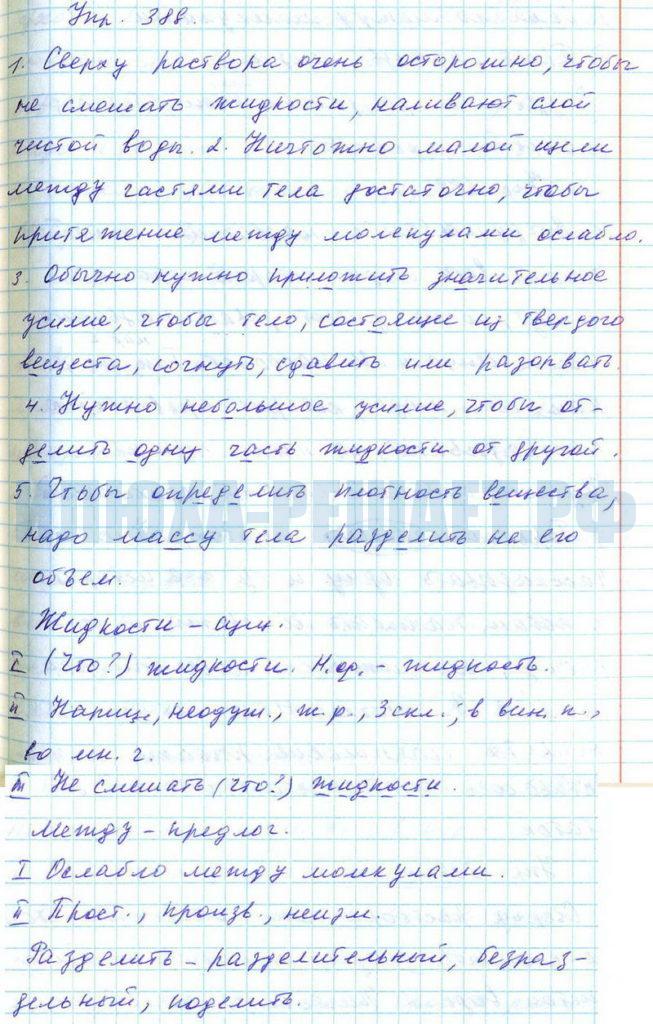 Упр. 388.
1. Сверху раствора очень осторожно, чтобы
не смешать жидкости, наливают слой
чистой воды. 2. Ничтожно малой щели
между частями тела достаточно, чтобы
притяжение между молекулами ослабло.
3. Обычно нужно приложить значительное
усилие, чтобы тело, состоящее из твердого
вещеста, согнуть, сдавить или разорвать.
4. Нужно небольшое усилие, чтобы от-
делить одну часть жидкости от другой.
5. Чтобы определить плотность вещества,
надо массу тела разделить на его
объем.
Жидкости – сущ.
I (Что?) жидкости. Н.ф. – жидкость.
II Нариц., неодуш., ж.р., 3 скл.; в вин. п.,
во мн. ч.
III Не смешать (что?) жидкости.
Между – предлог.
I Ослабло между молекулами.
II Прост., произв., неизм.
Разделить – разделительный, безраз-
дельный, поделить.